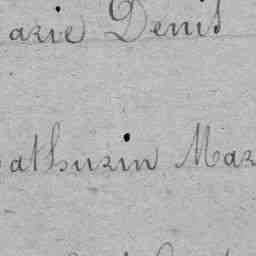 arie Denis
athurin Mar